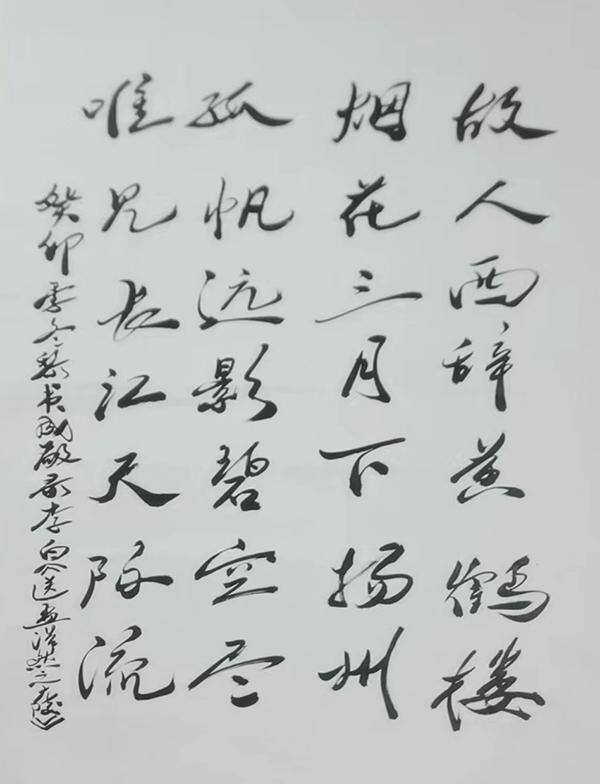 故人西辞黄鹤楼
烟花三月下扬州
孤帆远影碧空尽
唯见长江天际流
癸卯季冬书录李白《送孟浩然之广陵》